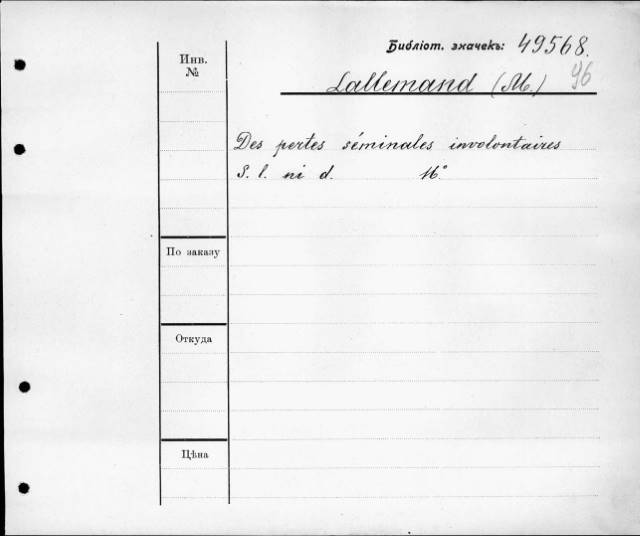 Библіот. значекъ: 49568.
96
Инв.
№
Lallemand (M.)
Des pertes séminales involontaires
S. l. ni d. 16°.
По заказу
Откуда
Цѣна